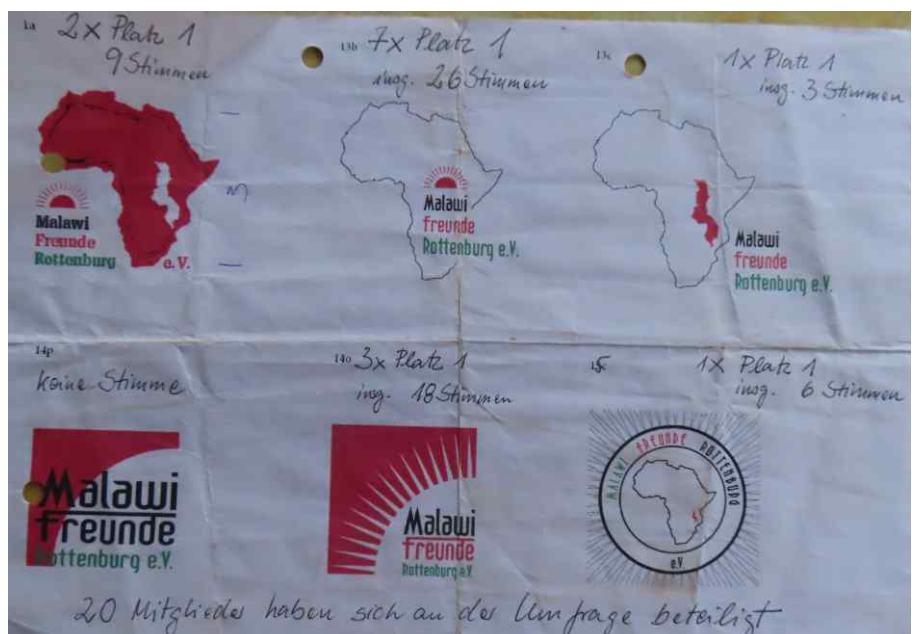 1a 2x Platz 1
9 Stimmen
Malawi
Freunde
Rottenburg e.V.
13b 7x Platz 1
insg. 26 Stimmen
Malawi
freunde
Rottenburg e.V.
13c 1x Platz 1
insg. 3 Stimmen
Malawi
freunde
Rottenburg e.V.
14p
keine Stimme
Malawi
freunde
Rottenburg e.V.
14o 3x Platz 1
insg. 18 Stimmen
Malawi
freunde
Rottenburg e.V.
1x Platz 1
insg. 6 Stimmen
MALAWI FREUNDE ROTTENBURG
e.V
20 Mitglieder haben sich an der Umfrage beteiligt